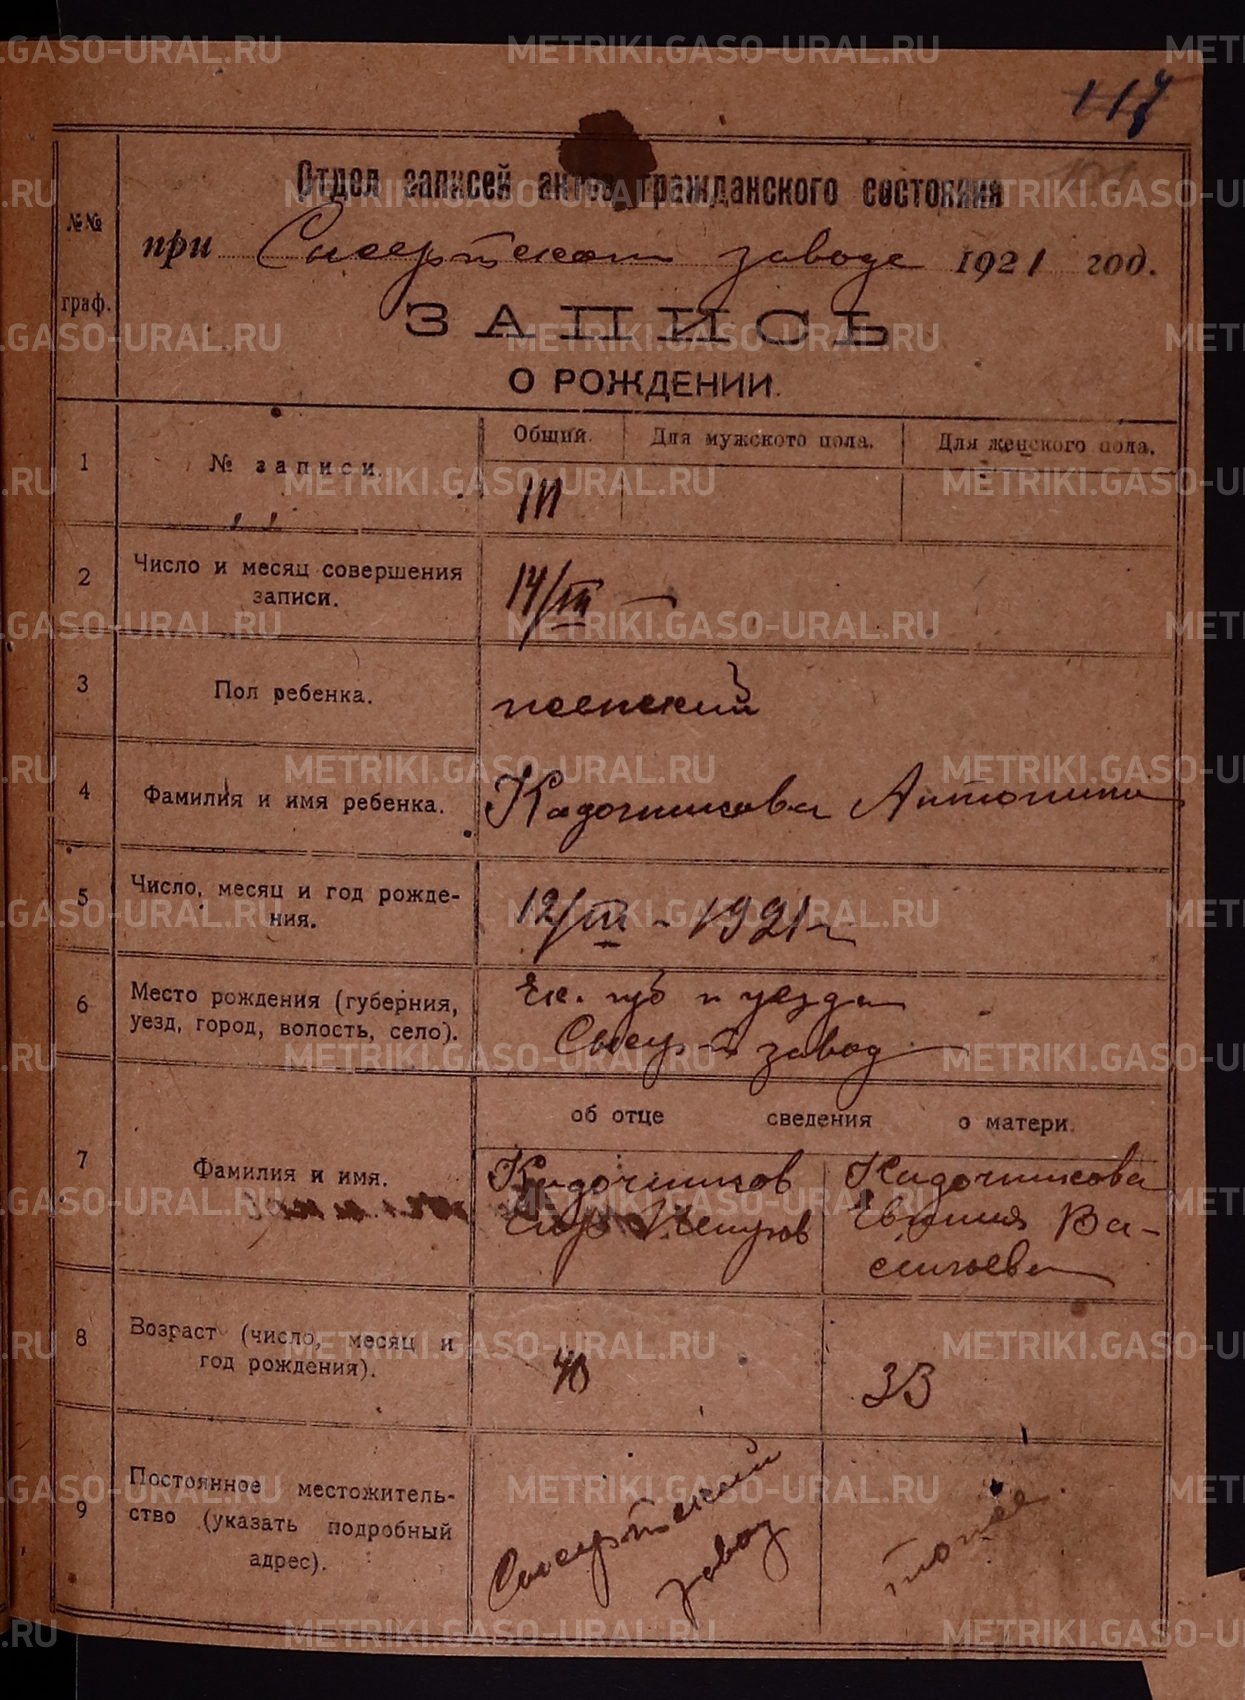 117
Отдел записей актов гражданского состояния
№№ граф.
при Сысертском заводе 1921 год.
ЗАПИСЬ
О РОЖДЕНИИ.
Общий. Для мужского пола. Для женского пола.
1 № записи. 111
2 Число и месяц совершения
записи. 14/III —
3 Пол ребенка. женский
4 Фамилия и имя ребенка. Кадочникова Антонина
5 Число, месяц и год рожде-
ния. 12/III - 1921 г.
6 Место рождения (губерния,
уезд, город, волость, село).
Ек. губ и уезда
Сысер-й завод
об отце сведения о матери.
7 Фамилия и имя.
Кадочников
Егор
Кадочникова
Евгения Ва-
сильева
8 Возраст (число, месяц и
год рождения).
40 33
9 Постоянное местожитель-
ство (указать подробный
адрес).
Сысертский
завод
тоже
METRIKI.GASO-URAL.RU